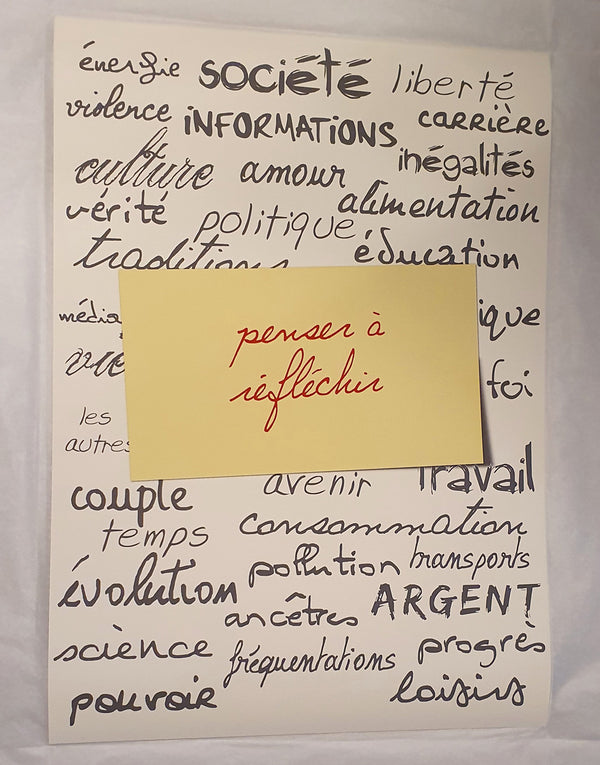 énergie société liberté
violence INFORMATIONS CARRIÈRE
culture amour inégalités
vérité politique alimentation
traditions éducation
média ique
vie foi
penser à
réfléchir
les
autres
avenir Travail
couple
temps consommation
évolution pollution transports
ancêtres ARGENT
science fréquentations progrès
pouvoir loisirs